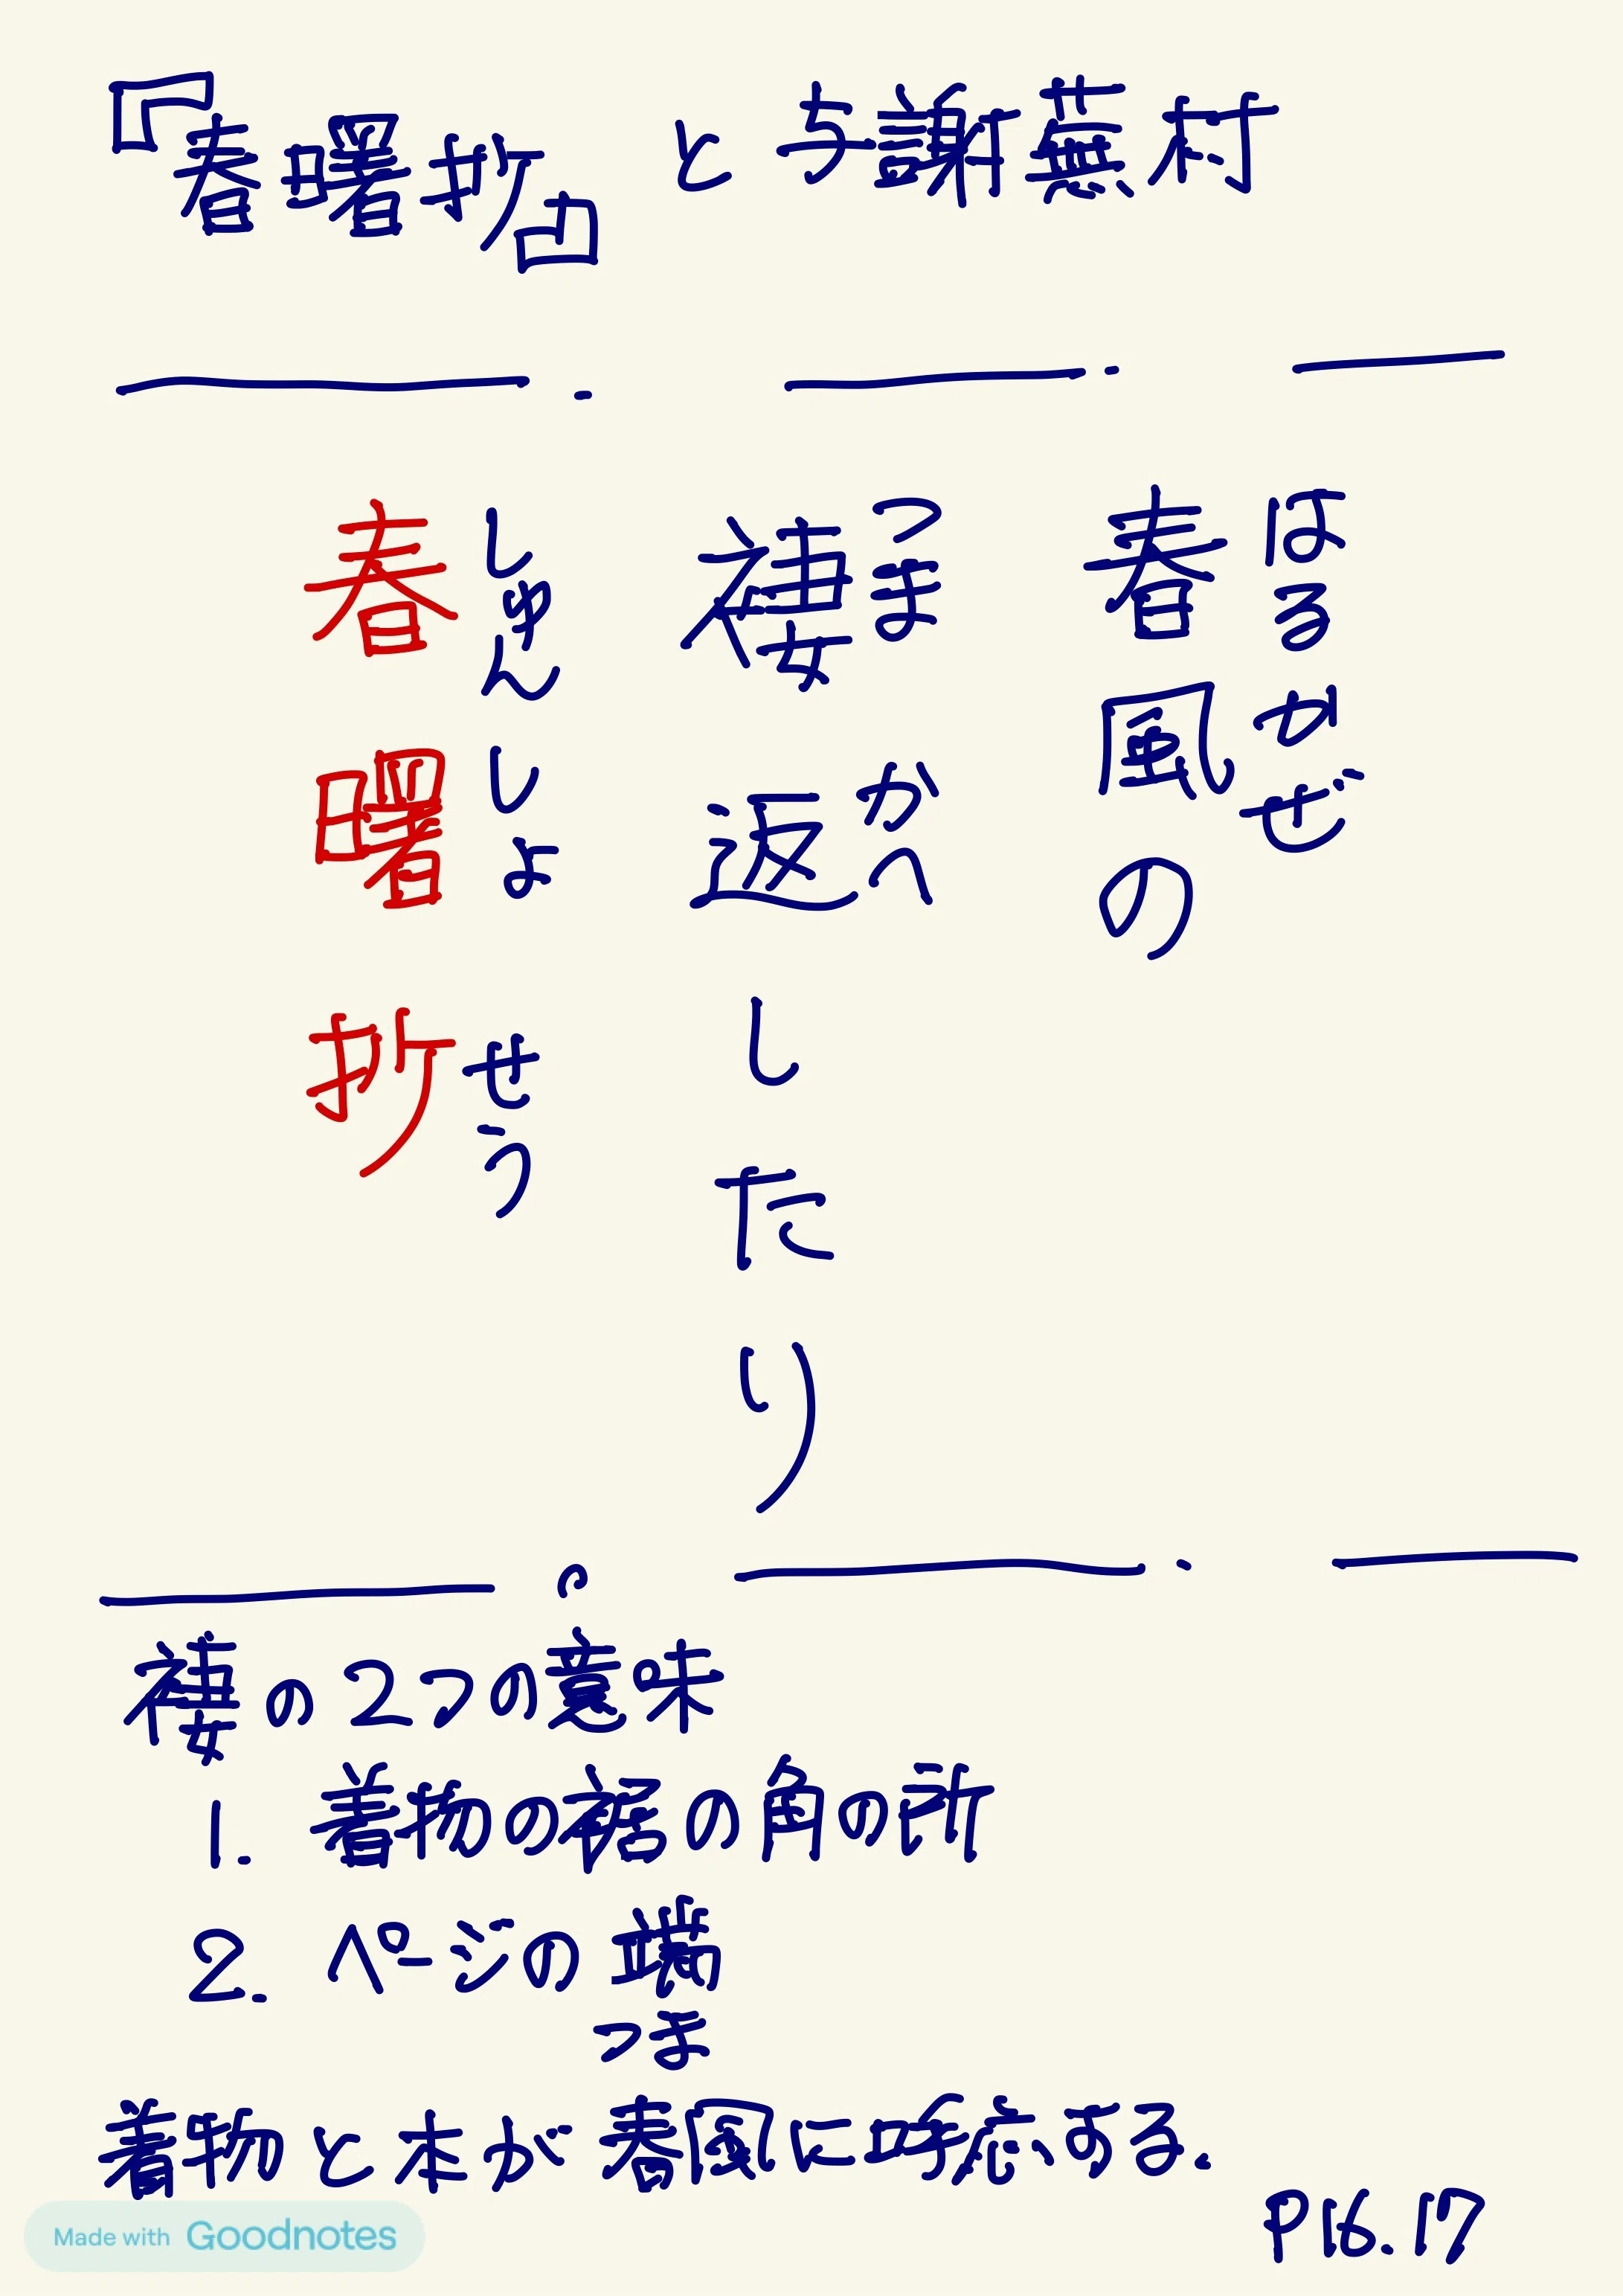 『春曙抄』と与謝蕪村
はるかぜ
春風の
つま かへ
褄返したり
しゅん しょ せう
春曙抄
褄の2つの意味
1. 着物の裾の角の所
2. ページの端
つま
着物と本が春風に呼応する.
P16.17
Made with Goodnotes